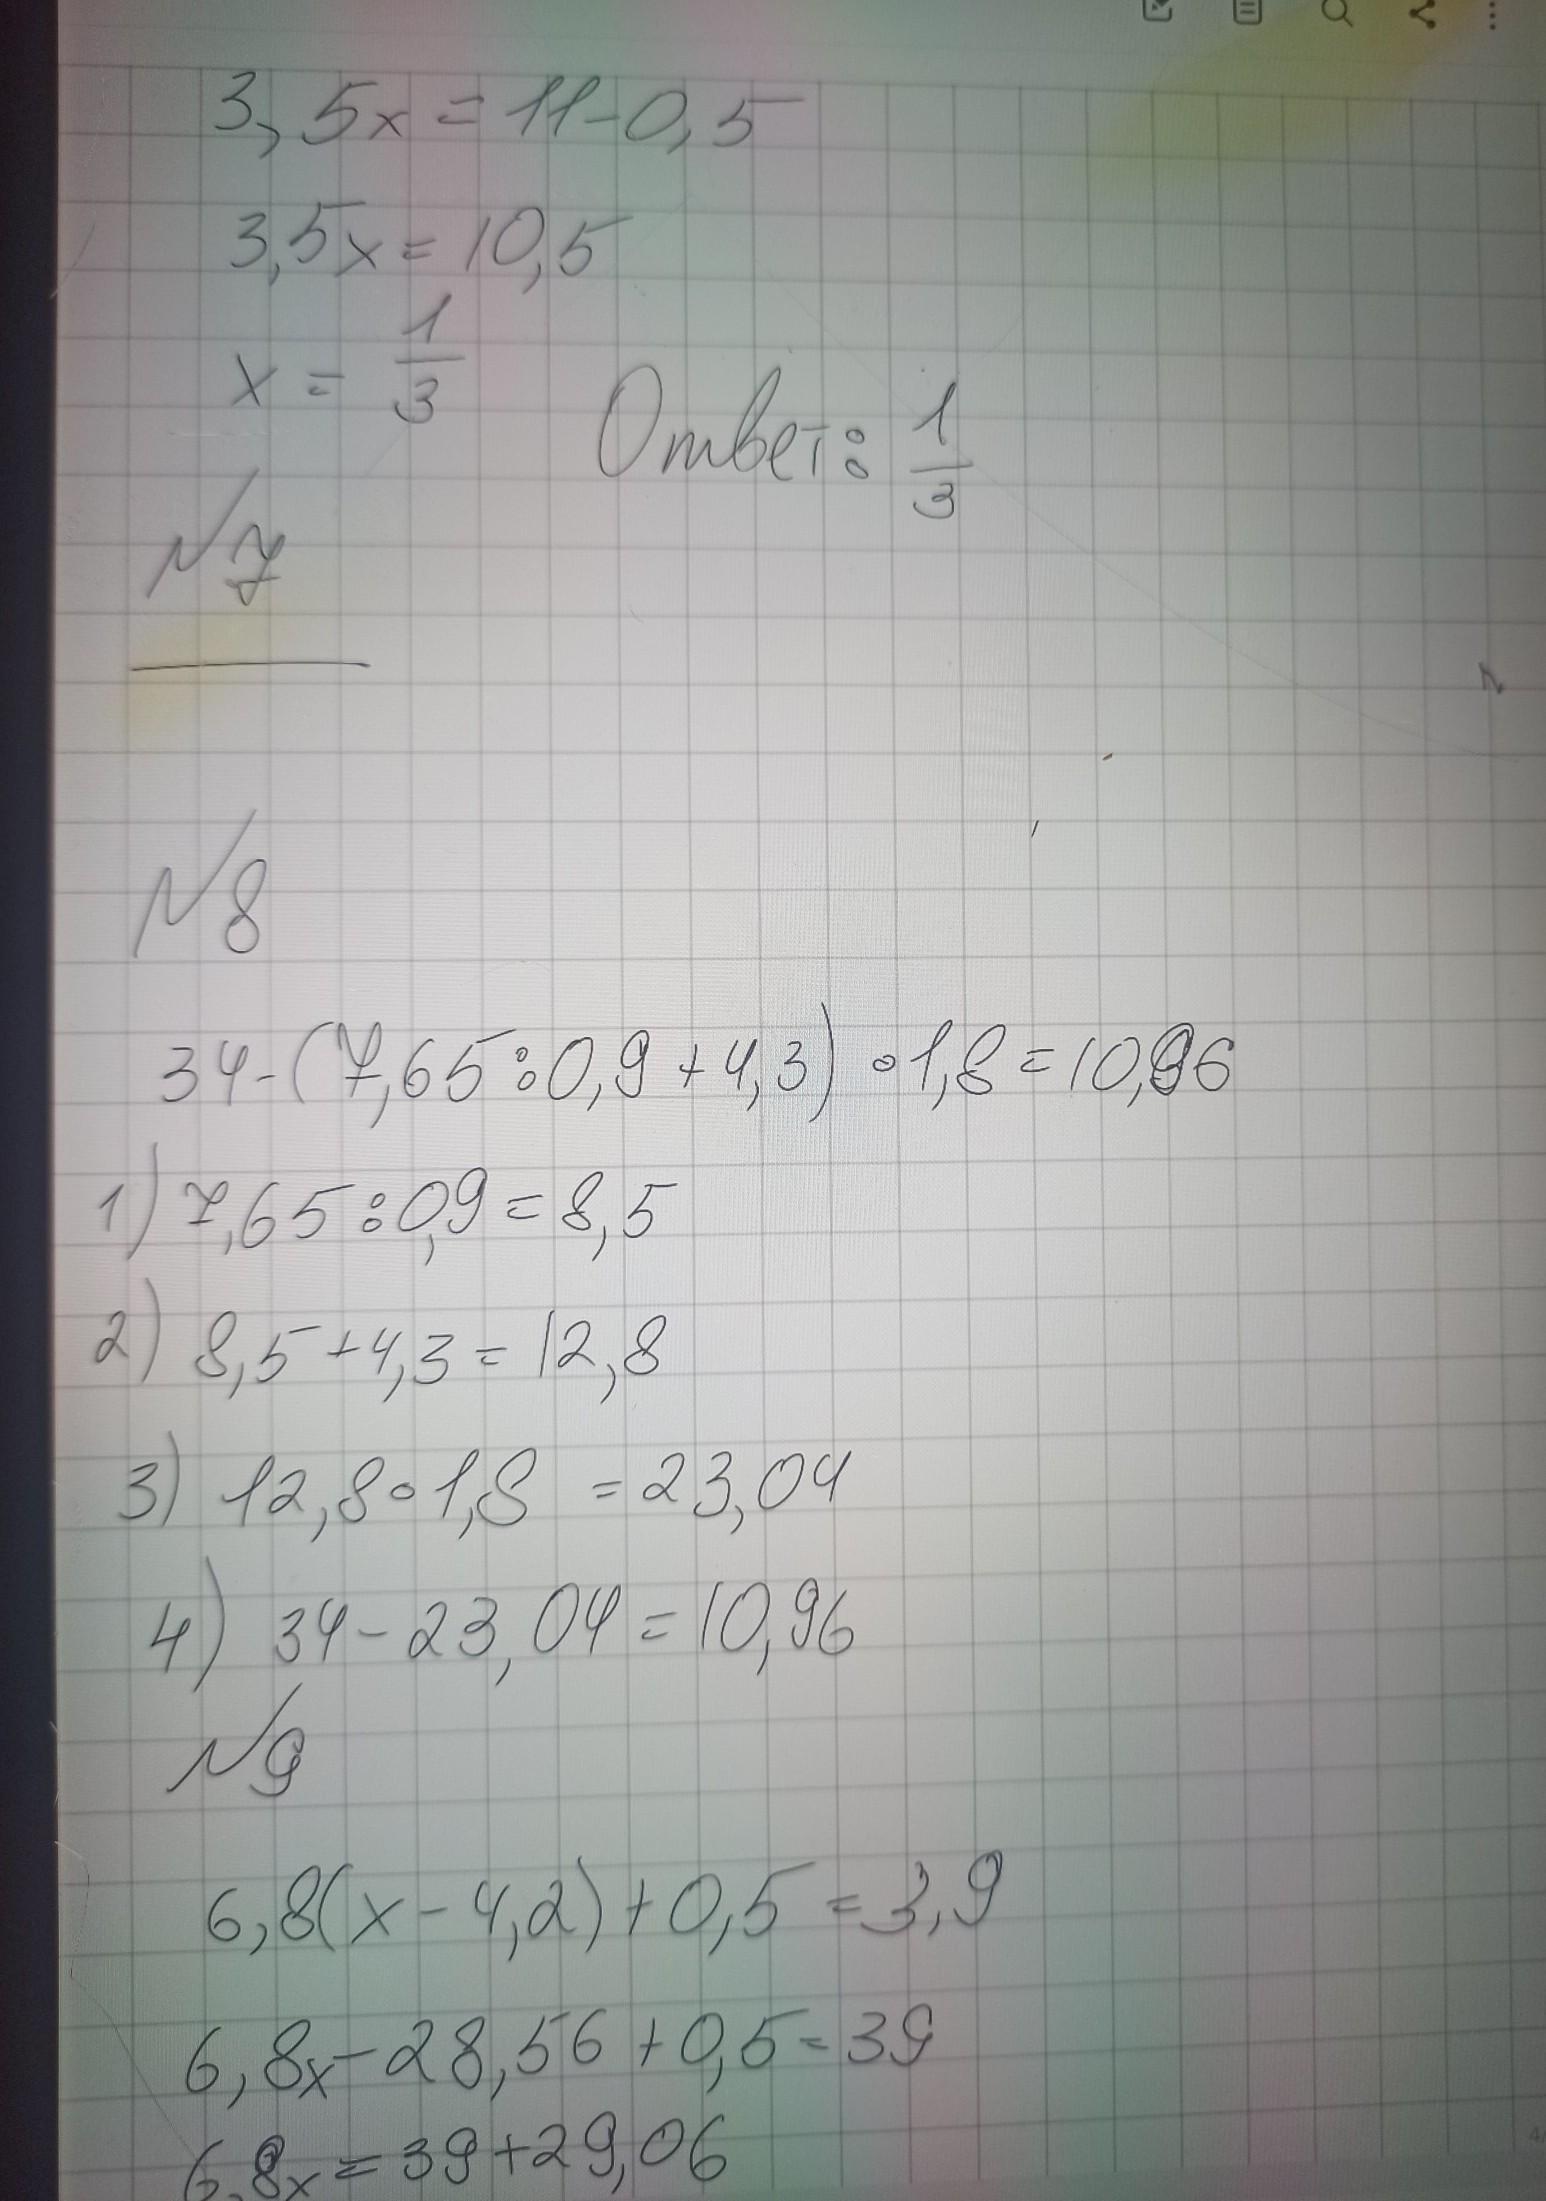 3,5x=11-0,5
3,5x=10,5
x=1/3
Ответ: 1/3
№7
№8
34-(7,65:0,9+4,3)∘1,8=10,96
1) 7,65:0,9=8,5
2) 8,5+4,3=12,8
3) 12,8∘1,8=23,04
4) 34-23,04=10,96
№9
6,8(x-4,2)+0,5=3,9
6,8x-28,56+0,5=39
6,8x=39+29,06